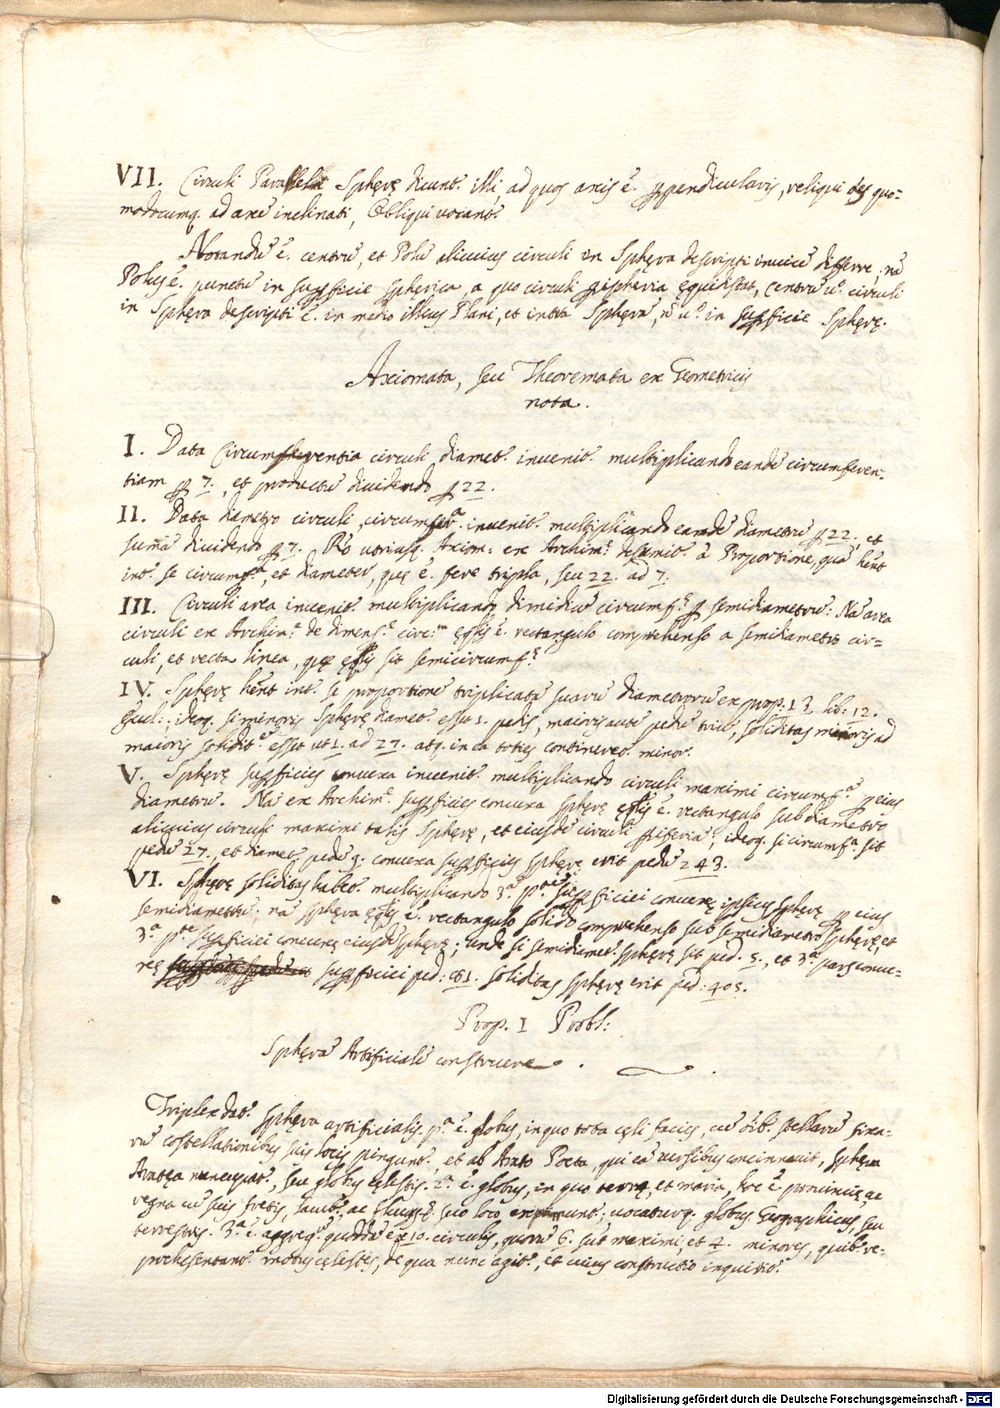 VII. Circuli Paralleli Sphęrę dicunt.ʳ illi ad quos axis ē. ꝑpendicularis, reliqui oēs quo-
modocumq. ad axē inclinati, Obliqui vocant.ʳ
Notandū ē. centrū, et Polū alicuius circuli in Sphęra descripti invicē differre, nā
Polus ē. punctū in suꝑficie spherica, a quo circuli ꝑipheria ęquidistat, Centrū v.º circuli
in Sphęra descripti ē. in medio illius Plani, et intra Sphęrā, nō v.º in suꝑficie Sphęrę.
Axiomata, seu Theoremata ex Geometricis
nota.
I. Data Circumferentia circuli diamet.ʳ invenit.ʳ multiplicando eandē circumferen-
tiam ꝑ 7., et productū dividendo ꝑ 22.
II. Data diametro circuli, circumferª. invenit.ʳ multiplicando eandē diametrū ꝑ 22. et
sum̄a dividendo ꝑ 7. Rō utriusq. Axiom: ex Archim.ᵉ desumit.ʳ a Proportione, quā hēnt
int.ʳ se circumf.ª, et diameter, quę ē. fere tripla, seu 22. ad 7.
III. Circuli area invenit.ʳ multiplicando dimidiū circumf.ę ꝑ semidiametrū: Nā area
circuli ex Archim.ᵉ de dimens.ᵉ circ:ᵐ ęqlis ē. rectangulo comprehenso a semidiametro cir-
culi, et recta linea, quę ęqlis sit semicircumf.ę
IV. Sphęrę hēnt int.ʳ se proportionē triplicatā suarū diametrorū ex prop. 18. lib. 12.
Eucl.; ideoq. si minoris Sphęrę diamet.ʳ esset 1. pedis, maioris autē pedū triū, soliditas minoris ad
maioris solidit.ᵉ esset ut 1. ad 27. atq. in ea toties contineret.ʳ minor.
V. Sphęrę suꝑficies convexa invenit.ʳ multiplicando circuli maximi circumf.ª ꝑ eius
diametrū. Nā ex Archim.ᵉ suꝑficies convexa sphęrę ęqlis ē. rectangulo sub diametro
alicuius circuli maximi talis Sphęrę, et eiusdē circuli ꝑiferia, ideoq. si circumf.ª sit
pedū 27., et diamet.ʳ pedū 9: convexa suꝑficies sphęrę erit pedū 243.
VI. Sphęrę soliditas habet.ʳ multiplicando 3.ª p.ᵗᵉ suꝑficiei convexę ipsius sphęrę ꝑ eius
semidiametrū; nā sphęra ęqlis ē. rectangulo solido comprehenso sub semidiametro sphęrę, et
3.ª p.ᵗᵉ suꝑficiei convexę eiusdē sphęrę; unde si semidiamet.ʳ sphęrę sit ped. 5., et 3.ª pars conve-
xę suꝑficiei ped: 81. soliditas sphęrę erit ped: 405.
Prop. I Probl:
Sphęrā Artificialē construere.
Triplex dat.ʳ Sphęra artificialis. p.ª ē. globus, in quo tota cęli facies, cū oīb.ʳ stellarū fixa-
rū costellationibus suis locis pingunt.ʳ, et ab Arato Poeta, qui eā versibus concinnavit, Sphęra
Aratęa nuncupat.ʳ, seu globus cęlestis. 2.ª ē. globus, in quo terrę, et maria, hoc ē. provincię, ac
regna cū suis fretis, ac suo loco exprimunt.ʳ, vocaturq. globus Geographicus, seu
terrestris. 3.ª ē. aggreg.ᵐ quoddā ex 10. circulis, quorū 6. sūt maximi, et 4. minores, quib.ʳ re-
prehesentant.ʳ motus cęlestes, de qua nunc agit.ʳ, et cuius constructio inquirit.ʳ
Digitalisierung gefördert durch die Deutsche Forschungsgemeinschaft - DFG